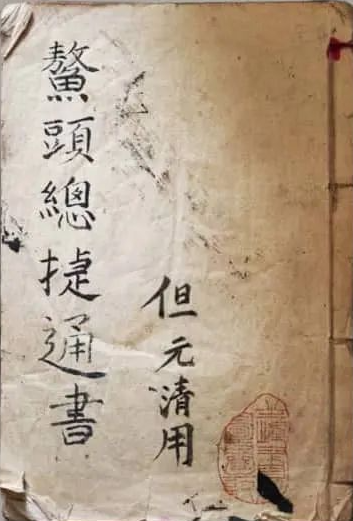 鰲頭總捷通書
但元清用